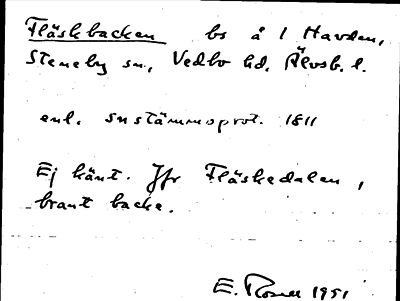 Fläskbacken bs å 1 Havden,
Steneby sn, Vedbo hd. Älvsb. l.
enl. snstämmoprot. 1811
Ej känt. Jfr Fläskedalen,
brant backe.
E. 1951